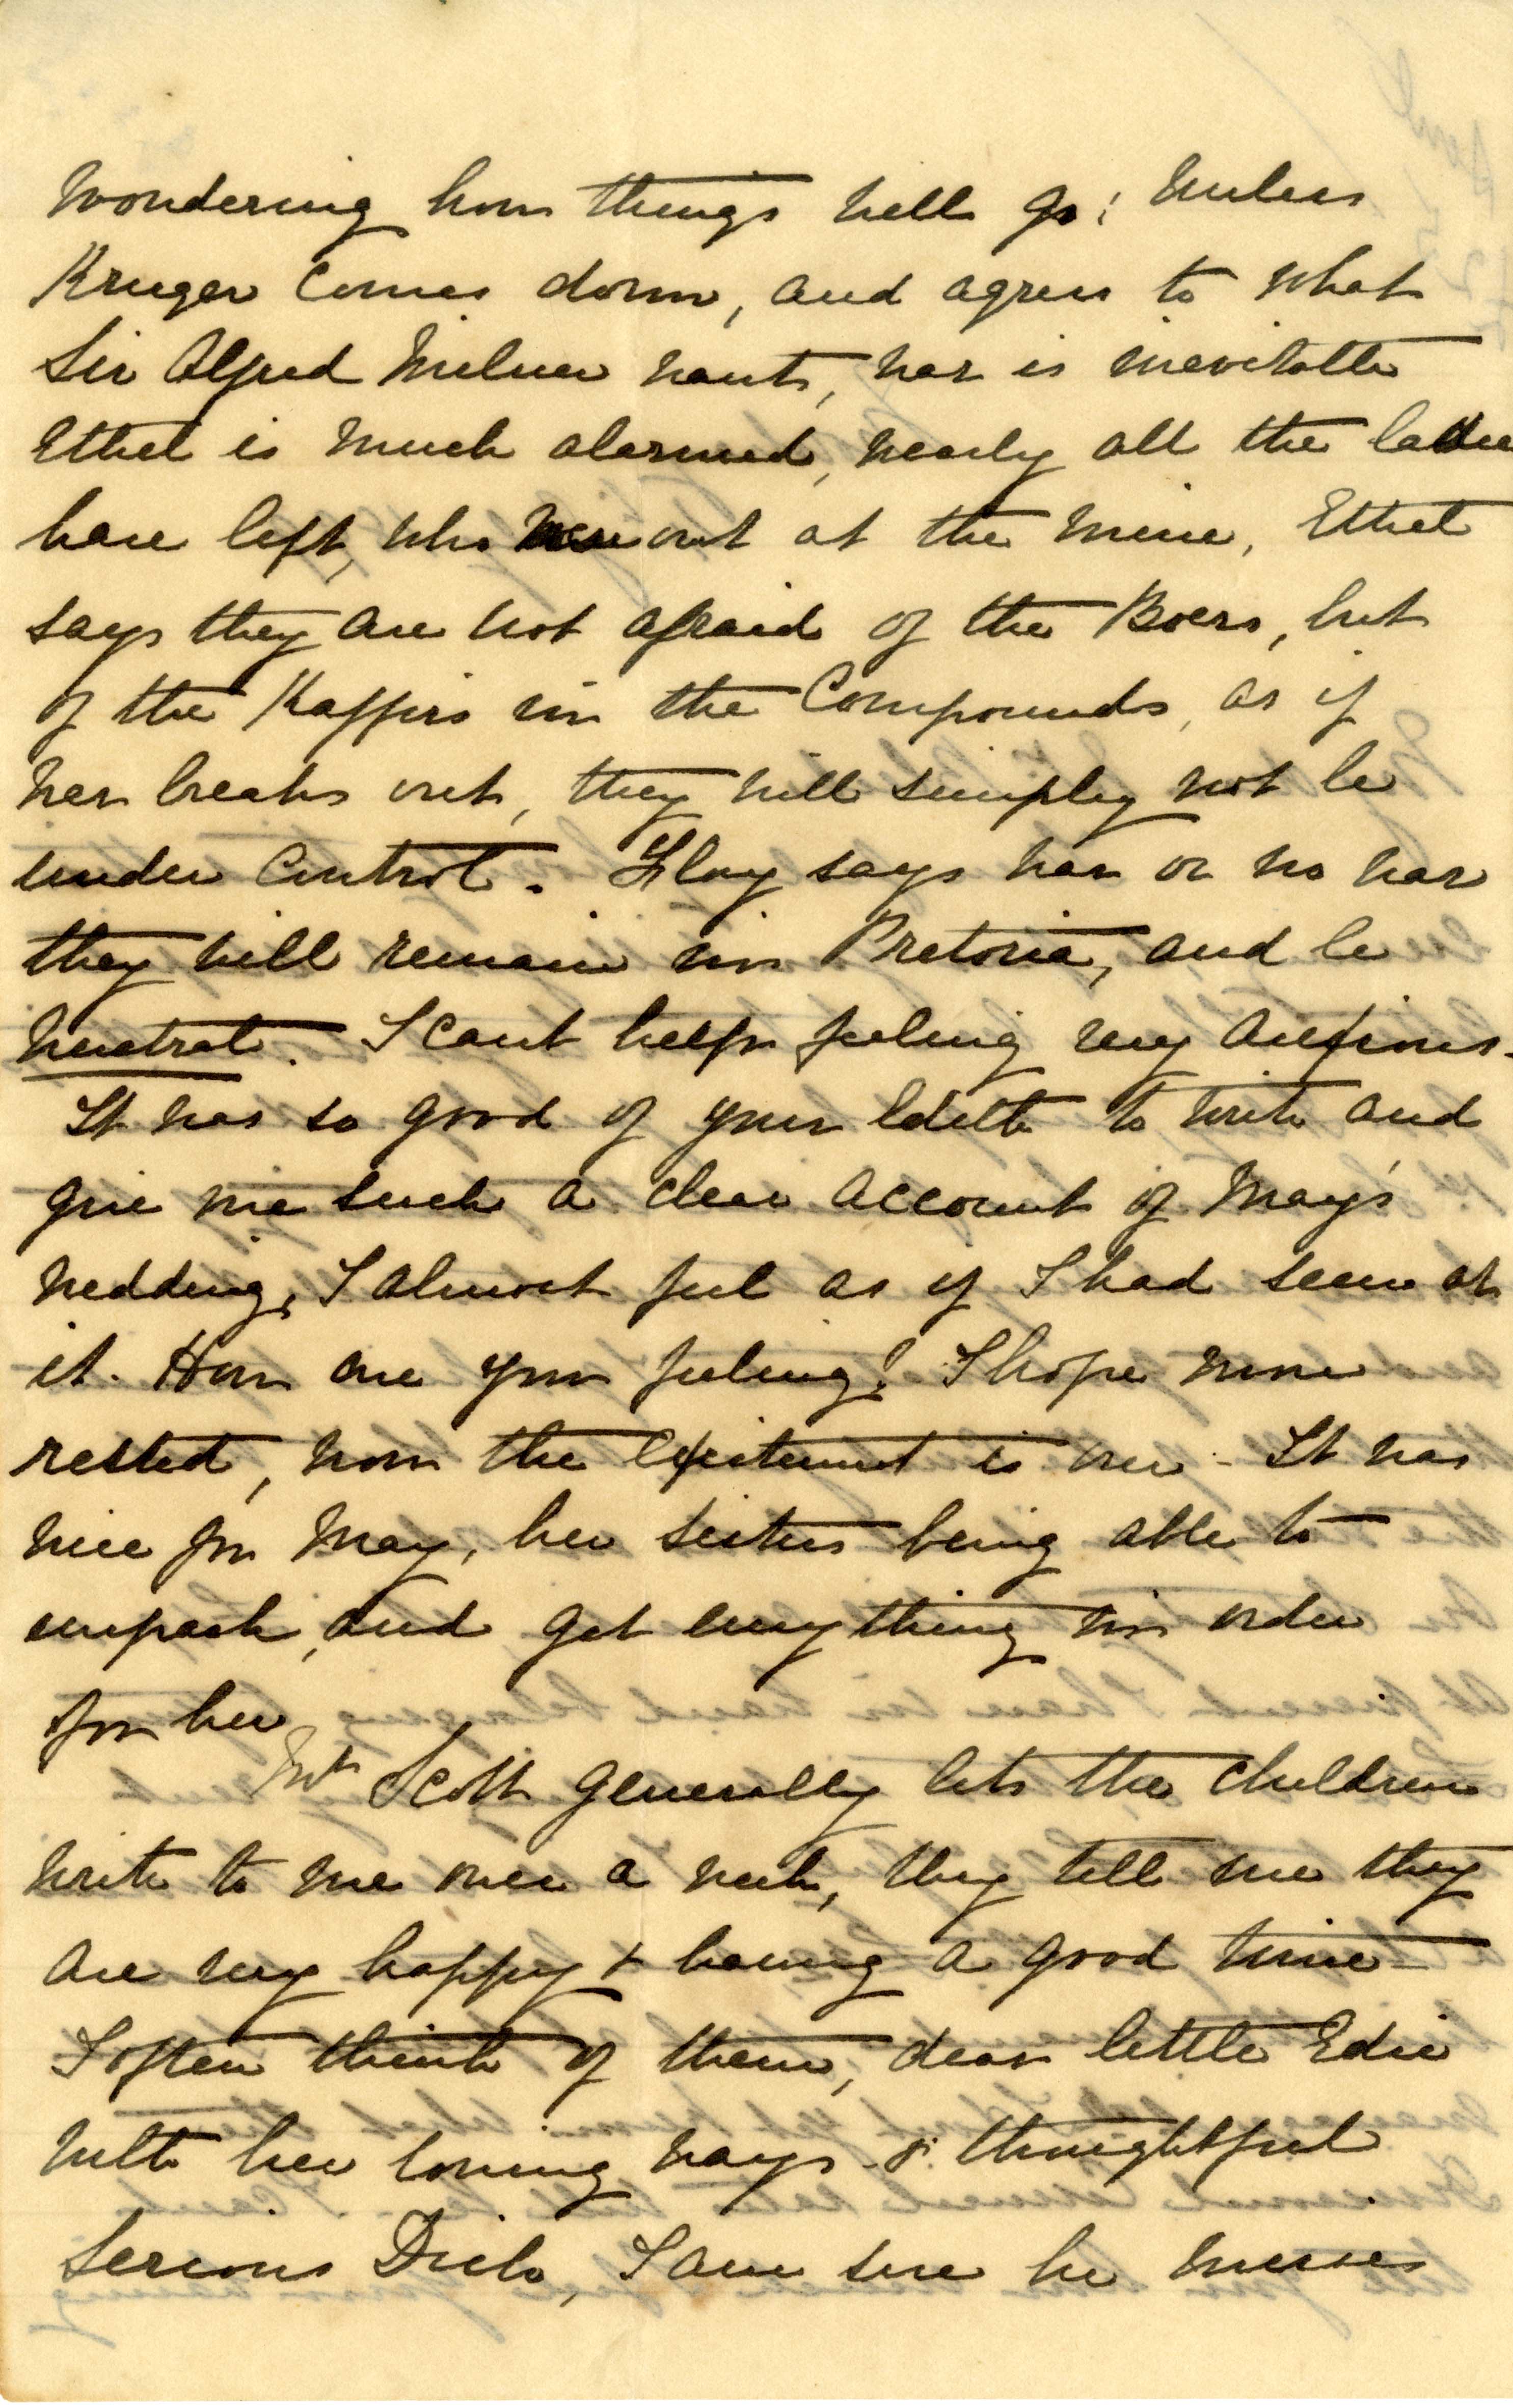 wondering how things will go; Unless
Kruger comes down, and agrees to what
Sir Alfred Milner wants, war is inevitable
Ethel is much alarmed, nearly all the ladies
have left, who were out at the mine, Ethel
says they are not afraid of the Boers, but
of the Kaffirs in the Compounds, as if
war breaks out, they will simply not be
under control. Floy says war or no war
they will remain in Pretoria, and be
neutral. I cant help feeling very anxious.
It was so good of your Edith to write and
give me such a clear account of May's
wedding, I almost feel as if I had been at
it. How are you feeling? I hope more
rested, now the excitement is over - It was
nice for May, her sisters being able to
unpack, and get everything in order
for her
Mrs Scott generally lets the children
write to me once a week, they tell me they
are very happy & having a good time -
I often think of them, dear little Edie
with her loving ways & thoughtful
serious Dick, I am sure he misses